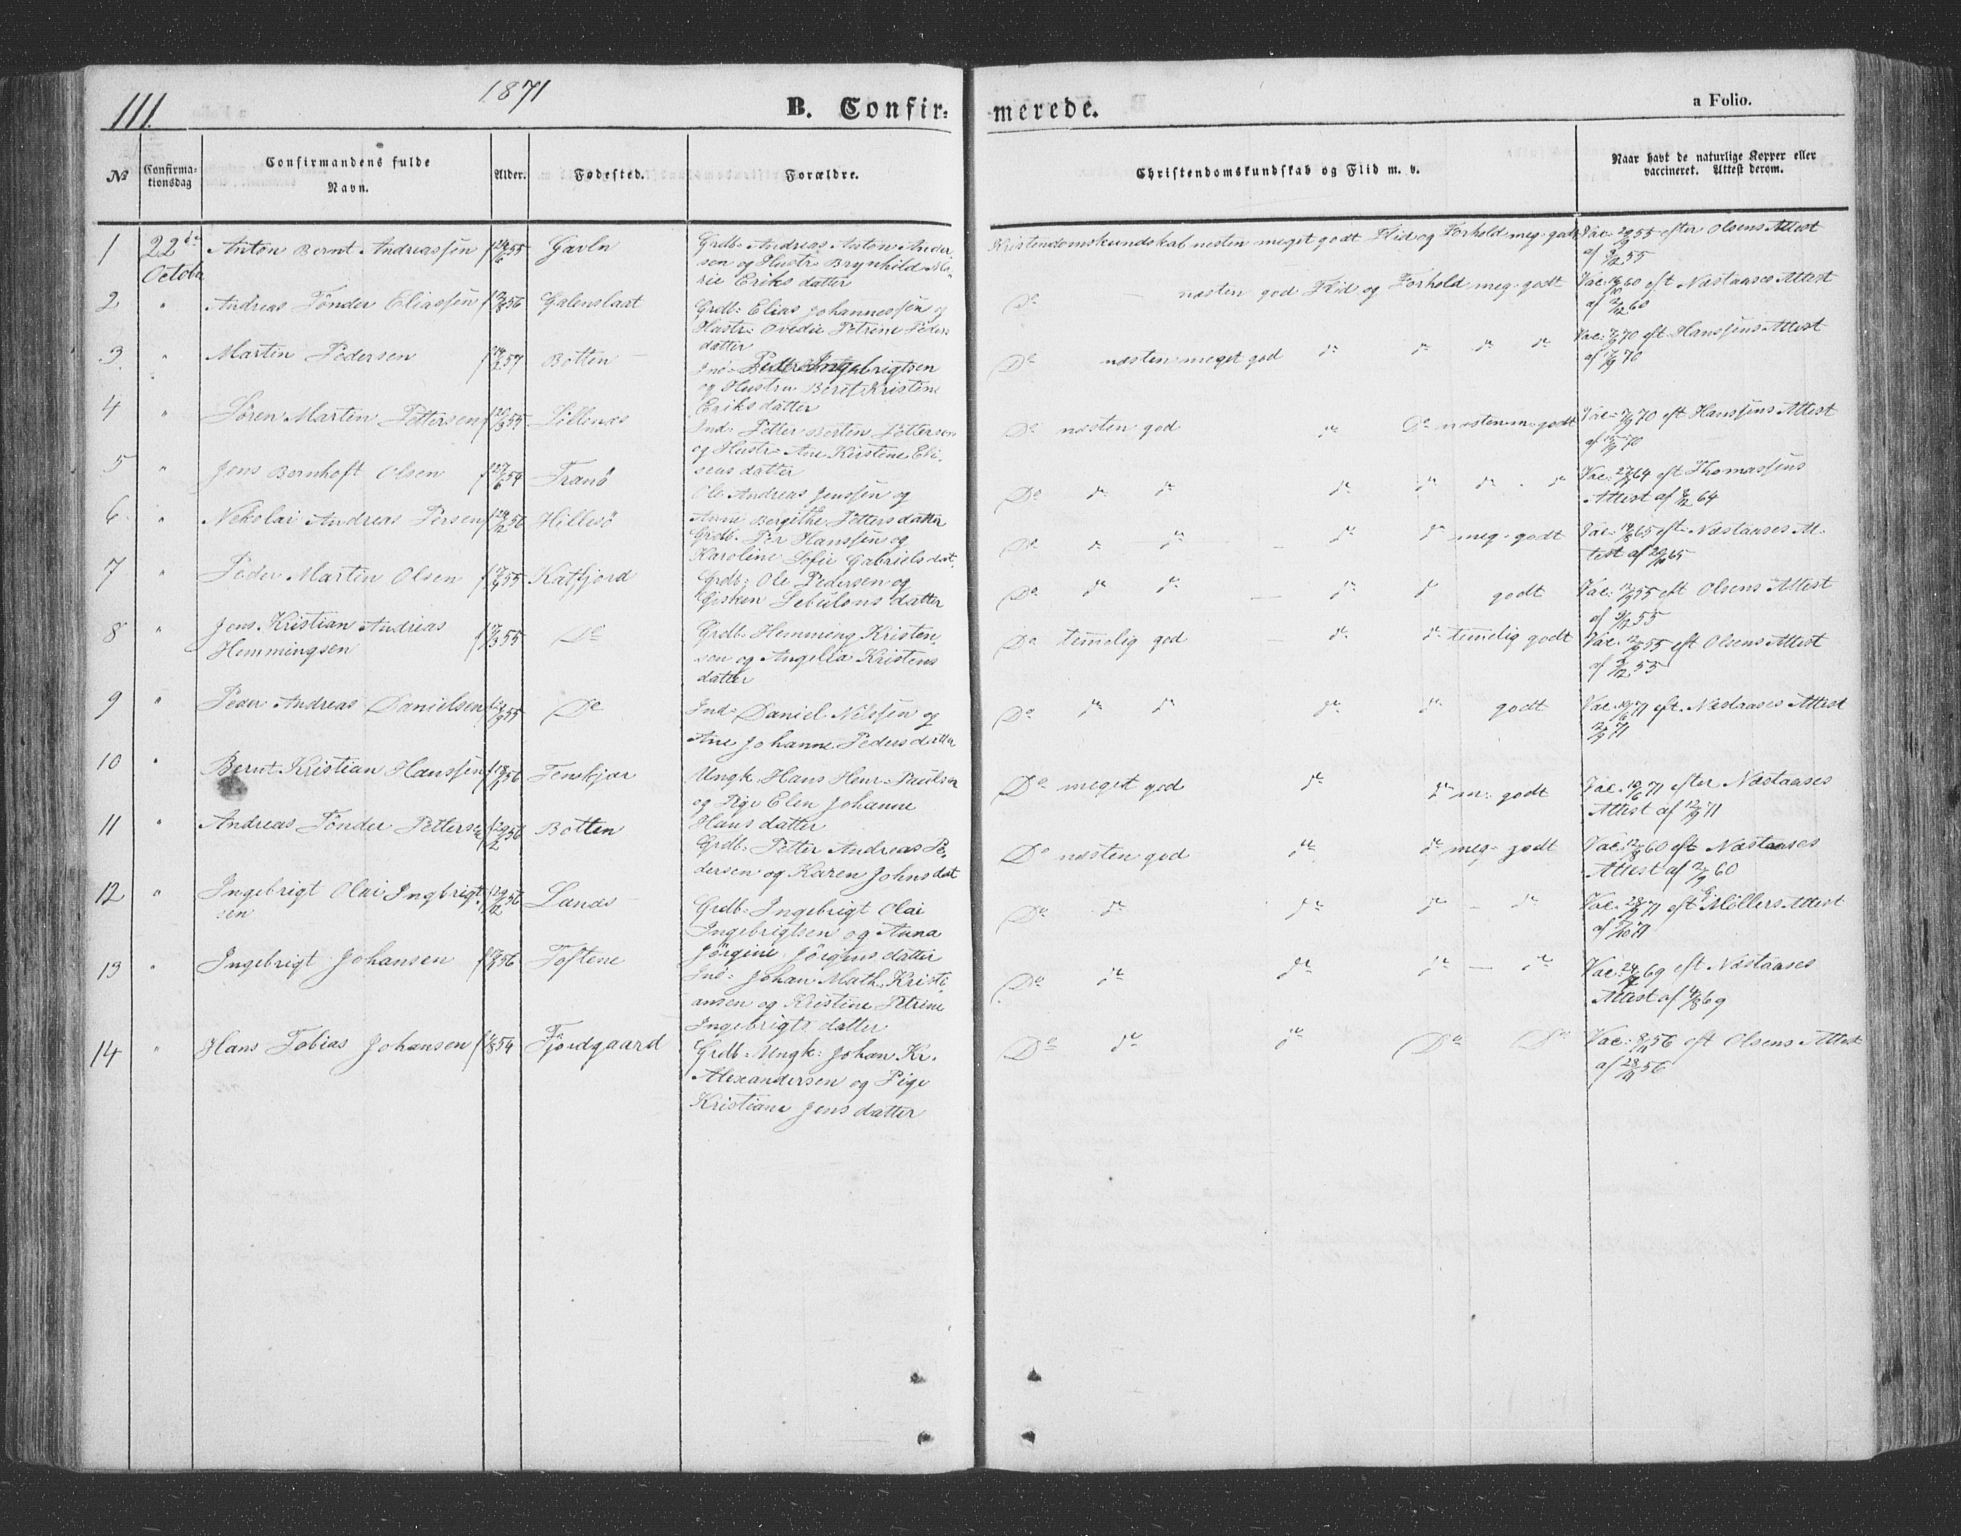 111.
1871
B. Confirmerede.
a Folio.
№
Confirmationsdag
Confirmandens fulde Navn.
Alder.
Fødested.
Forældre.
Christendomskundskab og Flid m. v.
Naar havt de naturlige Kopper eller vaccineret. Attest derom.
1 22de October Anton Bernt Andreassen Gavln Grdb. Andreas Anton Ander-
sen og Hustr. Brynhild Ma-
rie Eriksdatter
Kristendomskundskab nesten meget godt Flid og Forhold meg. godt Vac. 55 efter Olsens Attest
af 55
2 " Andreas Tønder Eliassen 56 Grdb. Elias Johannessen og
Hustr. Ovedie Petrine Peders
datter
Do næsten god Flid og Forhold meg. godt Vac. 60 eft Næstaases Attest
af 60
3. " Martin Pedersen 57 Botten Ind. Petter Ingebrigtsen
og Hustru Beret Kristine
Eriksdatter
Do næsten meget god do do do do Vac. 70 eft Hanssens Attest
af 70
4 " Søren Martin Pettersen 55 Lillenes Ind. Petter Berten Pettersen
og Hustr. Ane Kirstine Eli-
asdatter
Do næsten god do Do næsten m. godt Vac. 70 eft Hanssens Attest
af 70
5 " Jens Bernhoft Olsen 54 Tranø Ole Andreas Jenssen og
Anne Bergithe Pettersdatter
Do do do do do do do Vac. 64 eft Thomassens
Attest af 64
6 " Nekolai Andreas Persen 56 Hillesø Grdb. Per Hanssen og
Karoline Sofie Gabrielsdat.
Do do do do do meg. godt Vac. 65 eft Næstaases At-
test af 65
7 " Peder Martin Olsen 55 Katfjord Grdb: Ole Pedersen og
Gjsken Sebulonsdatter
Do do do do do godt Vac. 55 eft Olsens Attest
af 55
8 " Jens Kristian Andreas
Hemmingsen 55 Do Grdb. Hemming Kristen-
sen og Angelia Kristens
datter
Do temelig god do do temelig godt Vac. 55 eft Olsens Attest
af 55
9 " Peder Andreas Danielsen 55 Do Ind. Daniel Nilssen og
Ane Johanne Pedersdatter
Do do do do do godt Vac. 71 eft. Næstaases Attest
71
10 " Bernt Kristian Hanssen 56 Tenskjær Ungk. Hans Henr. Paulsen
og Pige Elen Johanne
Hansdatter
Do meget god do do m. godt Vac. 71 efter Næstaases
Attest af 71
11 " Andreas Tønder Pettersen 56 Botten Grdb. Petter Andreas Pe-
dersen og Karen Johnsdat
Do næsten god do do meg. godt Vac. 60 eft Næstaases
Attest af 60
12 " Ingebrigt Olai Ingbrigt-
sen 56 Lanæs Grdb. Ingebrigt Olai
Ingebrigtsen og Anna
Jørgine Jørgensdatter
Do do do do do Vac. 71 eft Møllers Attest
af 71
13 " Ingebrigt Johansen 56 Toftene Ind. Johan Math. Kristi-
ansen og Kristine Petrine
Ingebrigtsdatter
Do do do do do Vac. 69 eft Næstaases
Attest af 69
14 " Hans Tobias Johansen 54 Fjordgaard Grdb. Ungk: Johan Kr.
Alexandersen og Pige
Kristiane Jensdatter
Do do do Do Do Vac. 56 eft Olsens Attest
af 56